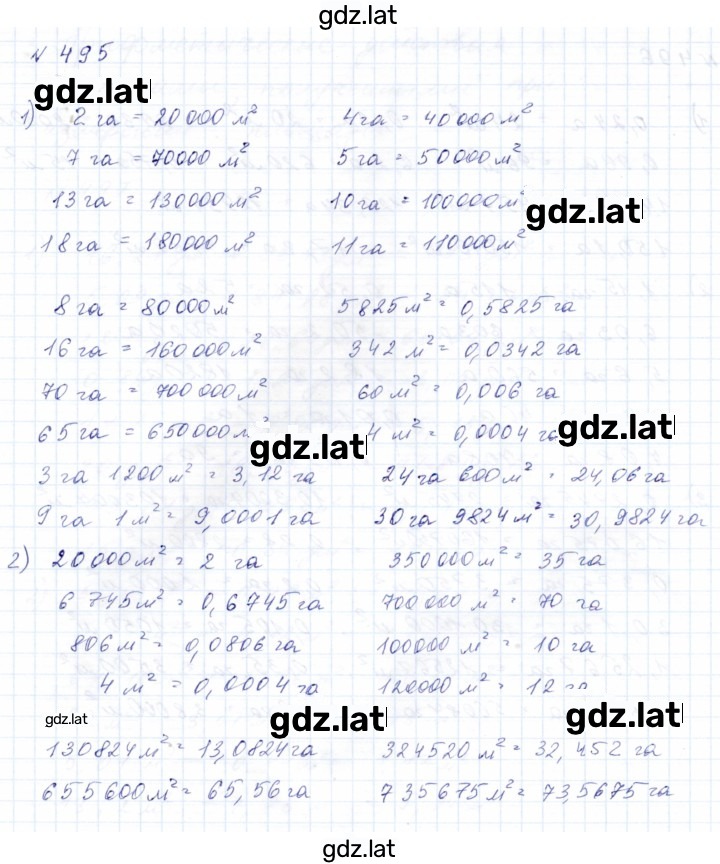 gdz.lat
№ 495
gdz.lat
1) 2 га = 20000 м² 4 га = 40000 м²
7 га = 70000 м² 5 га = 50000 м²
13 га = 130000 м² 10 га = 100000 м²
gdz.lat
18 га = 180000 м² 11 га = 110000 м²
8 га = 80000 м² 5825 м² = 0,5825 га
16 га = 160000 м² 342 м² = 0,0342 га
70 га = 700000 м² 60 м² = 0,006 га
65 га = 650000 м² 4 м² = 0,0004 га
gdz.lat
gdz.lat
3 га 1200 м² = 3,12 га 24 га 600 м² = 24,06 га
9 га 1 м² = 9,0001 га 30 га 9824 м² = 30,9824 га
2) 20000 м² = 2 га 350000 м² = 35 га
6 745 м² = 0,6745 га 700000 м² = 70 га
806 м² = 0,0806 га 100000 м² = 10 га
4 м² = 0,0004 га 120000 м² = 12 га
gdz.lat
gdz.lat
gdz.lat
130824 м² = 13,0824 га 324520 м² = 32,452 га
655600 м² = 65,56 га 735675 м² = 73,5675 га
gdz.lat